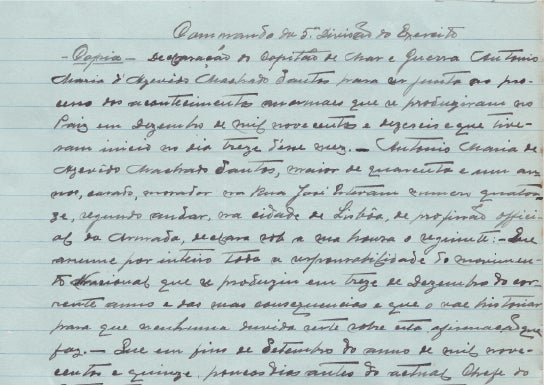 Commando da 5ª Divisão do Exercito
- Copia - Declaração do Capitão de Mar e Guerra Antonio
Maria d'Azevedo Machado Santos para ser junta ao pro-
cesso dos acontecimentos anormaes que se produziram no
Paiz em Dezembro de mil novecentos e dezeseis e que tive-
ram inicio no dia treze d'esse mez. - Antonio Maria de
Azevedo Machado Santos, maior de quarenta e um an-
nos, casado, morador na Rua José Estevam numero quator-
ze, segundo andar, na cidade de Lisbôa, de profissão offici-
al da Armada, declara sob a sua honra o seguinte: - Que
assume por inteiro toda a responsabilidade do movimen-
to Nacional que se produziu em treze de Dezembro do cor-
rente anno e das suas consequencias e que o vae historiar
para que nenhuma duvida reste sobre esta afirmação que
faz. - Que em fins de Setembro do anno de mil nove-
centos e quinze, poucos dias antes do actual Chefe do